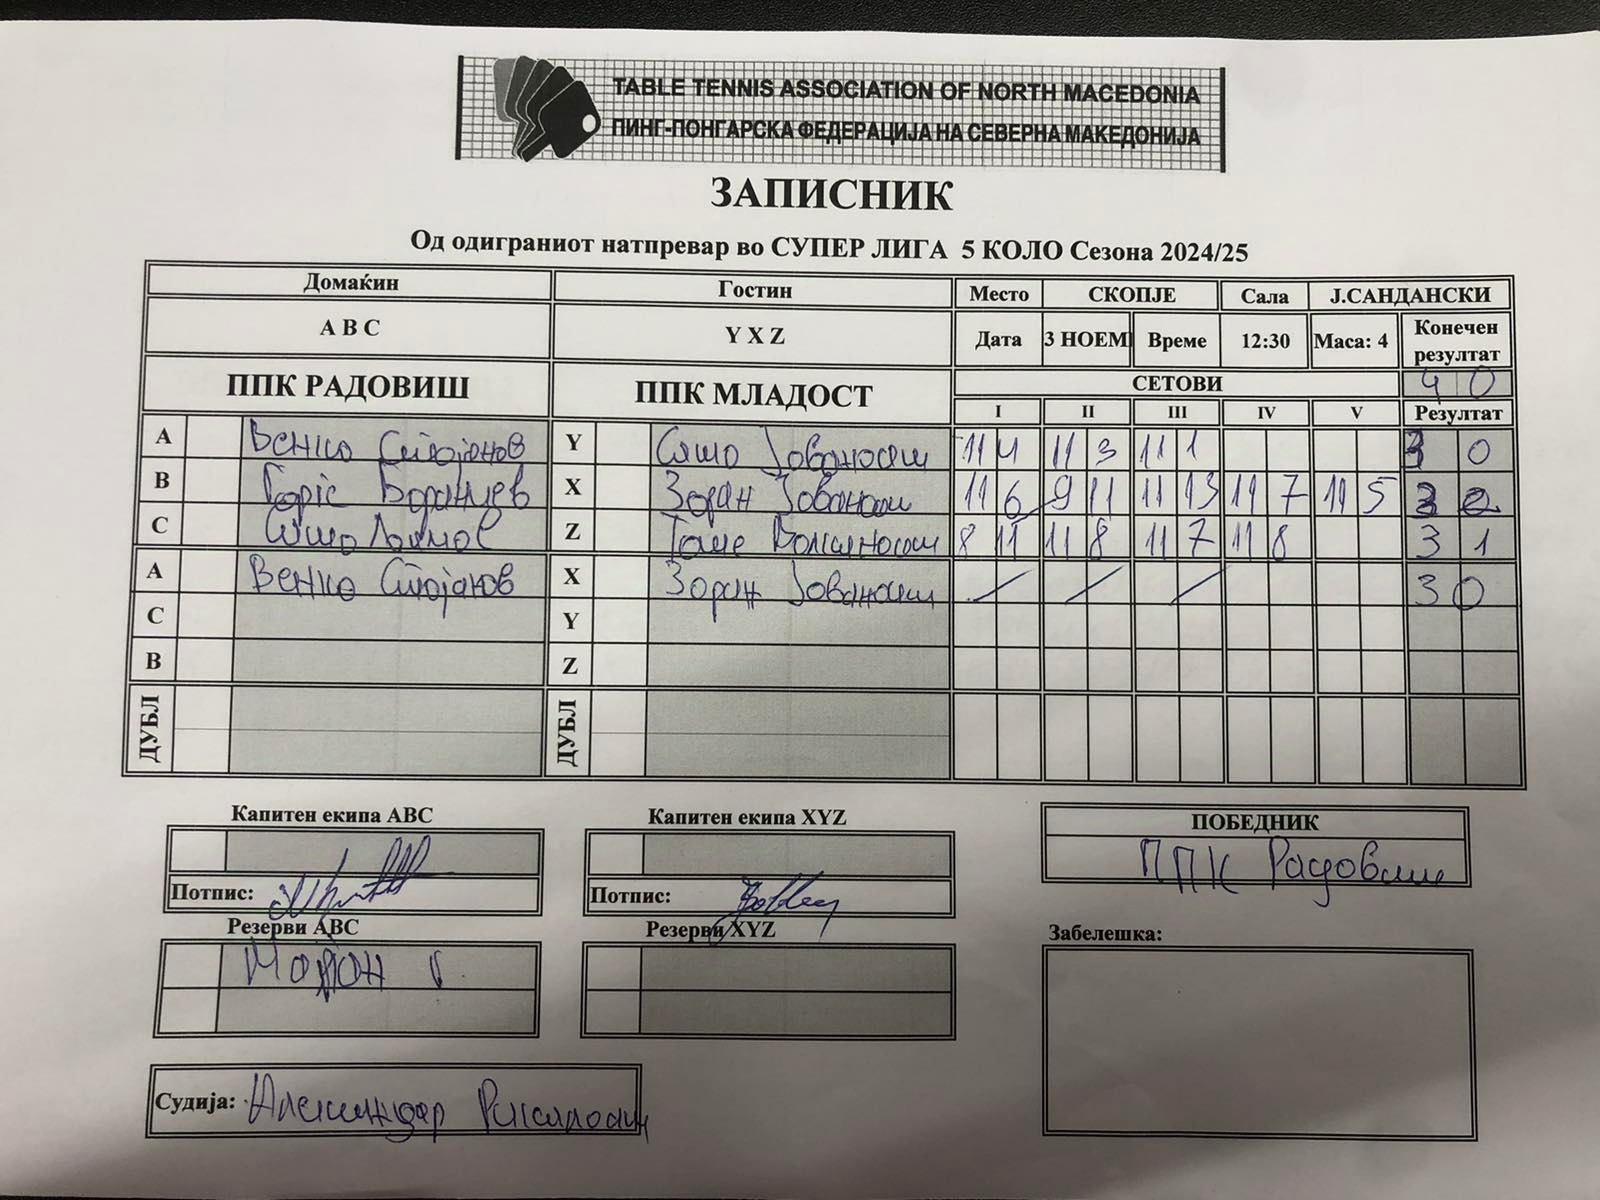 TABLE TENNIS ASSOCIATION OF NORTH MACEDONIA
ПИНГ-ПОНГАРСКА ФЕДЕРАЦИЈА НА СЕВЕРНА МАКЕДОНИЈА
ЗАПИСНИК
Од одиграниот натпревар во СУПЕР ЛИГА 5 КОЛО Сезона 2024/25
Домаќин Гостин Место СКОПЈЕ Сала Ј.САНДАНСКИ
A B C Y X Z Дата 3 НОЕМ Време 12:30 Маса: 4 Конечен резултат
ППК РАДОВИШ ППК МЛАДОСТ СЕТОВИ 4 0
I II III IV V Резултат
A Венко Стојанов Y Сашо Јовановски 11 4 11 3 11 1 3 0
B X Зоран Јовановски 11 6 9 11 11 13 11 7 11 5 3 2
C Z 8 11 11 8 11 7 11 8 3 1
A Венко Стојанов X Зоран Јовановски 3 0
C Y
B Z
ДУБЛ ДУБЛ
Капитен екипа ABC Капитен екипа XYZ ПОБЕДНИК
ППК Радовиш
Потпис: Потпис:
Резерви ABC Резерви XYZ Забелешка:
Судија: Александар